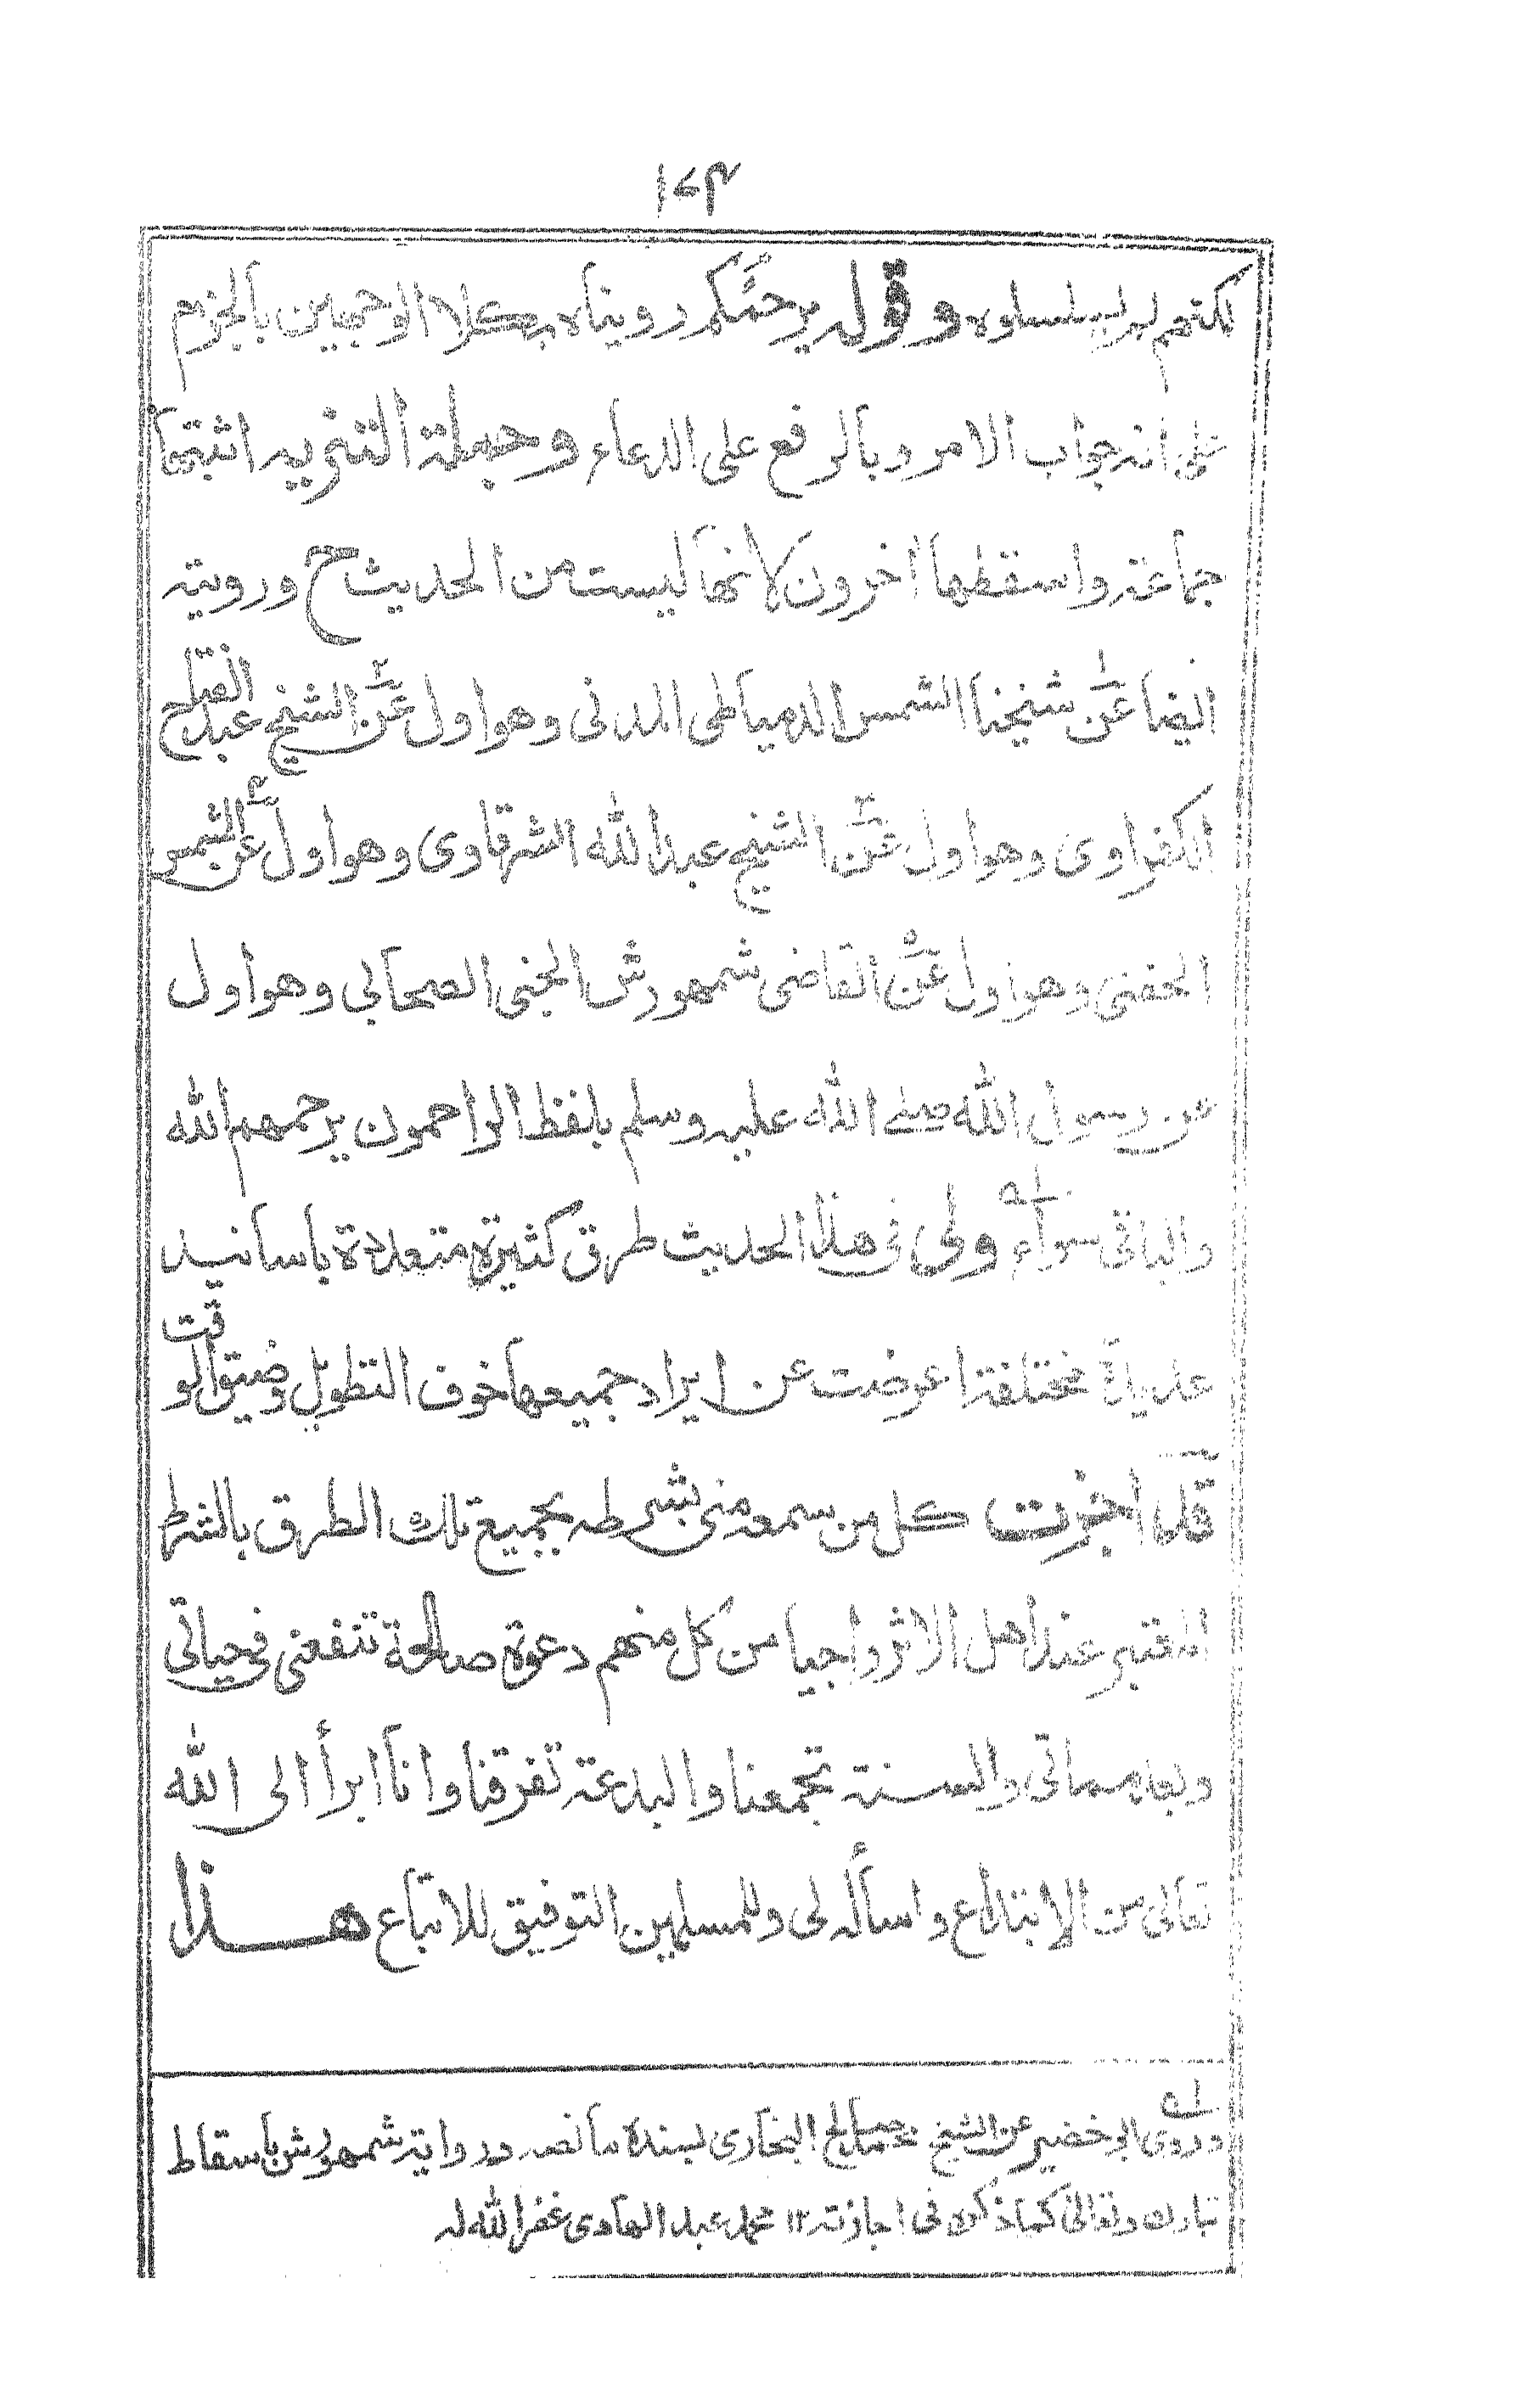 ١٧٣
لكنهم لم يسلسلوه وقوله يرحمكم رويناه بكلا الوجهين بالجزم
على انه جواب الامر وبالرفع على الدعاء وجملة التنزيه اثبتها
جماعة واسقطها اخرون لانها ليست من الحديث ح ورويته
ايضا عن شيخنا الشمس الدمياطى المدنى وهو اول عن الشيخ عبد الفتاح
الكفراوى وهو اول عن الشيخ عبد الله الشرقاوى وهو اول عن الشمس
الحفنى وهو اول عن القاضى شمهورش الجنى الصحابى وهو اول
عن رسول الله صلى الله عليه وسلم بلفظ الراحمون يرحمهم الله
والباقى سواء ولى فى هذا الحديث طرق كثيرة متعددة باسانيد
عديدة مختلفة اعرضت عن ايراد جميعها خوف التطويل وضيق الوقت
قد اجزت كل من سمعه منى بشرطه بجميع تلك الطرق بالشرط
المعتبر عند اهل الاثر واجيا من كل منهم دعوة صالحة تنفعنى فى حياتى
وبعد مماتى والسنة تجمعنا والبدعة تفرقنا وانا ابرأ الى الله
تعالى من الابتداع واسأله لى وللمسلمين التوفيق للاتباع هذا
وروى ابو خضير عن الشيخ محمد صالح البخارى بسنده ما نصه ورواية شمهورش باسقاط
تبارك وتعالى كما ذكره فى اجازته ١٢ محمد عبد الهادى غفر الله له